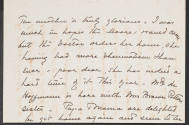 The weather is truly glorious. I was
much in hopes the Moores would
but the doctor orders her home, she
having had more rheumatism than
ever. - poor dear, she has indeed a
hard time of it this year. Mrs. de
Hegermann is here with Mrs.
sister. Papa & Mama are delighted
to get home again and seem to be